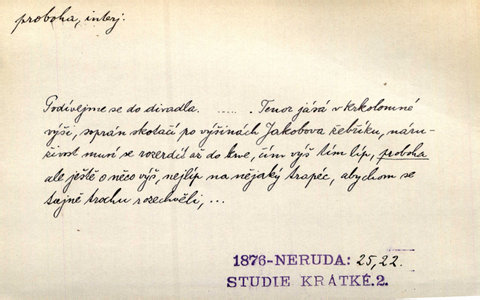 proboha, interj.
Podívejme se do divadla. ...... Tenor jásá v krkolomné
výši, soprán skotačí po výšinách Jakobova žebříku, náru-
živost musí se rozerdít až do krve, čím výš tím líp, proboha
ale ještě o něco výš, nejlíp na nějaký trapéc, abychom se
tajně trochu rozechvěli, ...
1876-NERUDA: 25,22.
STUDIE KRÁTKÉ.2.